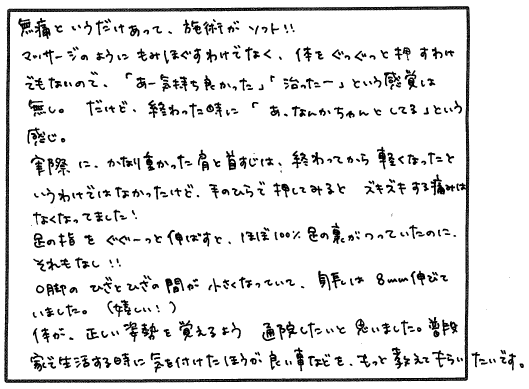 無痛というだけあって、施術がソフト!!
マッサージのようにもみほぐすわけでなく、体をぐっぐっと押すわけ
でもないので、「あー気持ち良かった」「治ったー」という感覚は
無し。だけど、終わった時に「あ、なんかちゃんとしてる」という
感じ。
実際に、かなり重かった肩と首すじは、終わってから軽くなったと
いうわけではなかったけど、手のひらで押してみると ズキズキする痛みは
なくなってました!
足の指をぐぐーっと伸ばすと、ほぼ100%足の裏がつっていたのに、
それもなし!!
O脚のひざとひざの間が小さくなっていて、身長は8mm伸びて
いました。(嬉しい!)
体が、正しい姿勢を覚えるよう 通院したいと思いました。普段
家で生活する時に気を付けたほうが良い事などを、もっと教えてもらいたいです。